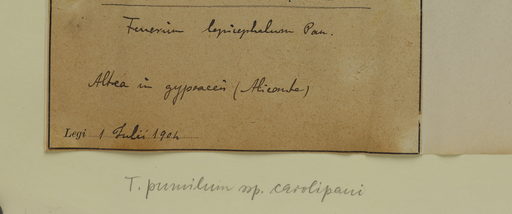 Teucrium lepicephalum Pau.
Altea in gypsaceis (Alicante)
Legi 1 Julii 1904
T. pumilum ssp. carolipaui